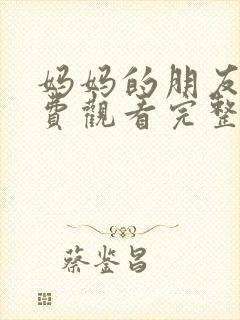 妈妈的朋友
费观看完整
蔡鉴昌